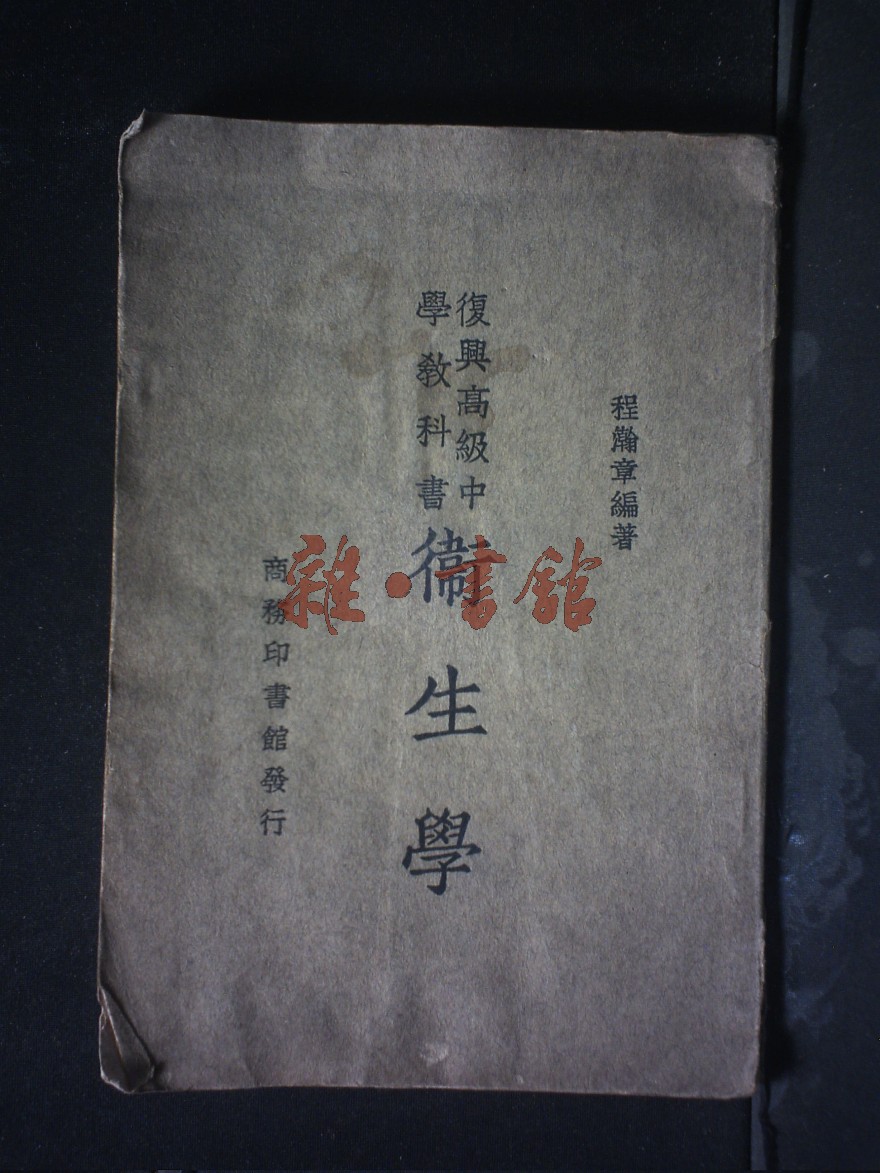 程瀚章編著
復興高級中
學教科書
衞生學
商務印書館發行
雜·書館